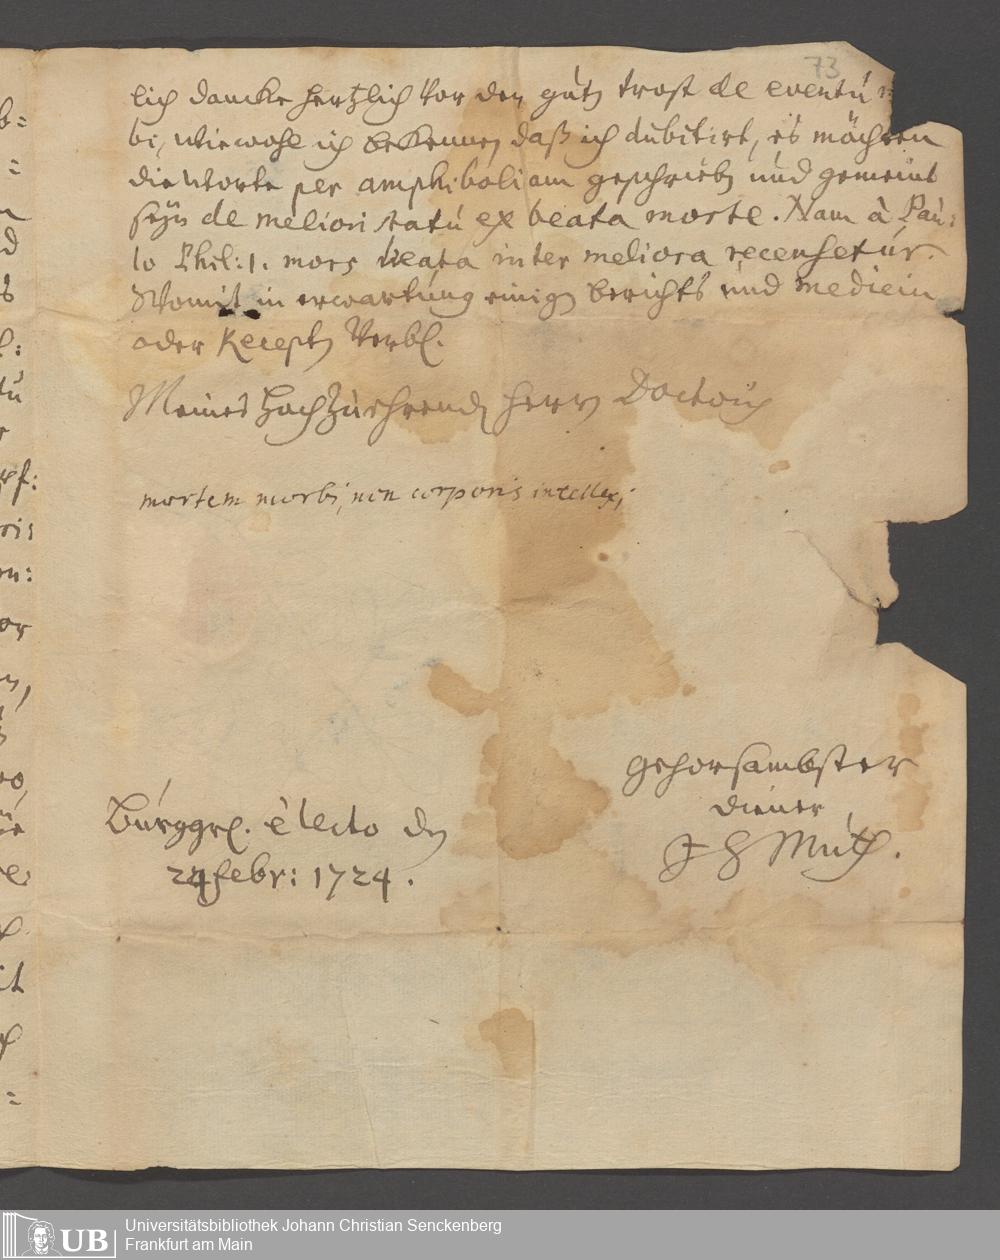 73
lich dancke hertzlich vor den guten trost de eventu
bi, wiewohl ich bekennen daß ich dubitirt, es möchten
die worte per amphiboliam geschrieben und gemeint
seyn de meliori statu ex beata morte. Nam à Pau:
lo Phil: 1. mors beata inter meliora recensetur.
Womit in erwartung einigen berichts und medicin
oder Recepten verbl.
Meines HochZuehrenden Herrn Doctoris
mortem morbi, non corporis intellexi
gehorsambster
diener
Burggrl. den
24 febr: 1724.
Universitätsbibliothek Johann Christian Senckenberg
Frankfurt am Main
UB